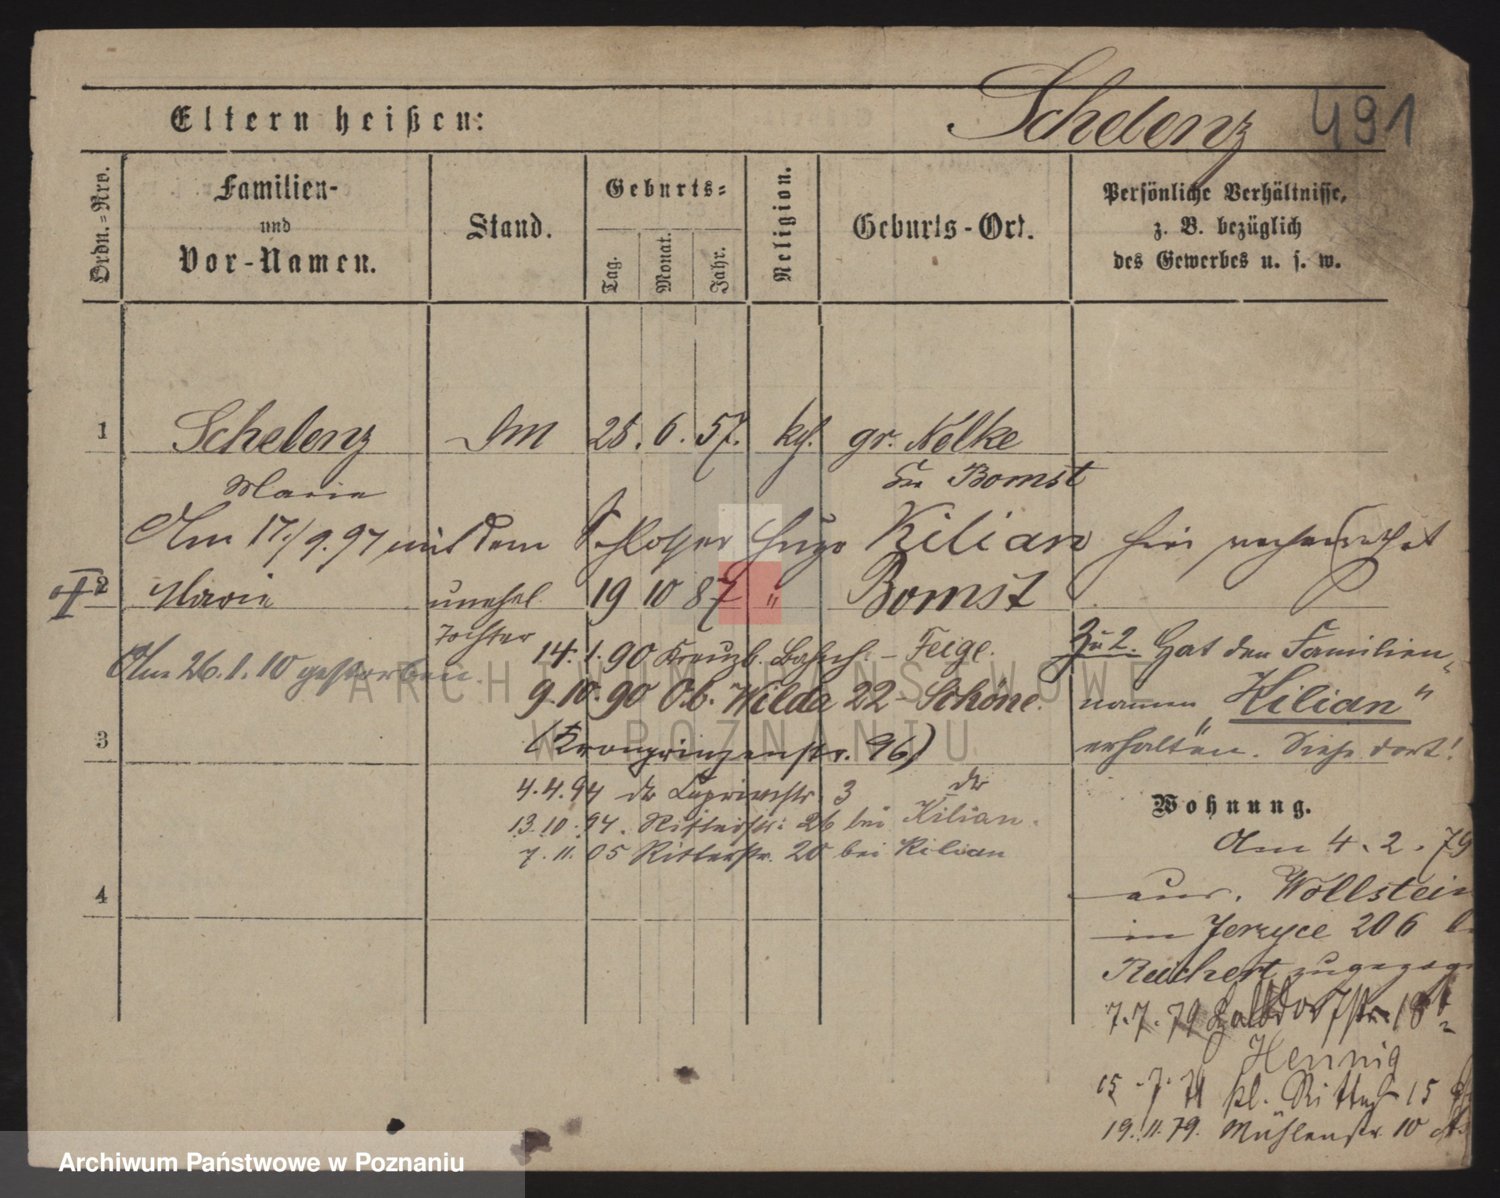 Schelenz
491
Eltern heißen:
Ordn.=Nro.
Familien-
und
Vor-Namen.
Stand.
Geburts=
Tag.
Monat.
Jahr.
Religion.
Geburts-Ort.
Persönliche Verhältnisse,
z. B. bezüglich
des Gewerbes u. s. w.
1 Schelenz 28. 6. 57. gr. Nelke
Marie Bomst
Am 17./9.97 mit dem Schlosser Hugo Kilian hier verheirathet
2 Marie unehel. 19 10 87 " Bomst
Tochter
Am 26.1.10 gestorben.
14.1.90 Kreuzb. - Feige.
9.10.90 Ob. Wilda 22 - Schöne.
3 (Kronprinzenstr. 96)
4.4.94 3
13.10.94. Ritterstr. 26 bei Kilian.
7.11.05 Ritterstr. 20 bei Kilian
4
Zu 2. Hat den Familien-
namen „Kilian"
erhalten. Siehe dort!
Wohnung.
Am 4.2.79
aus Wollstein
in Jerzyce 206
Reichert
7.7.79
Hennig
15.7. kl. Ritter 15
19.11.79. Mühlenstr. 10
ARCHIWUM PAŃSTWOWE
W POZNANIU
Archiwum Państwowe w Poznaniu